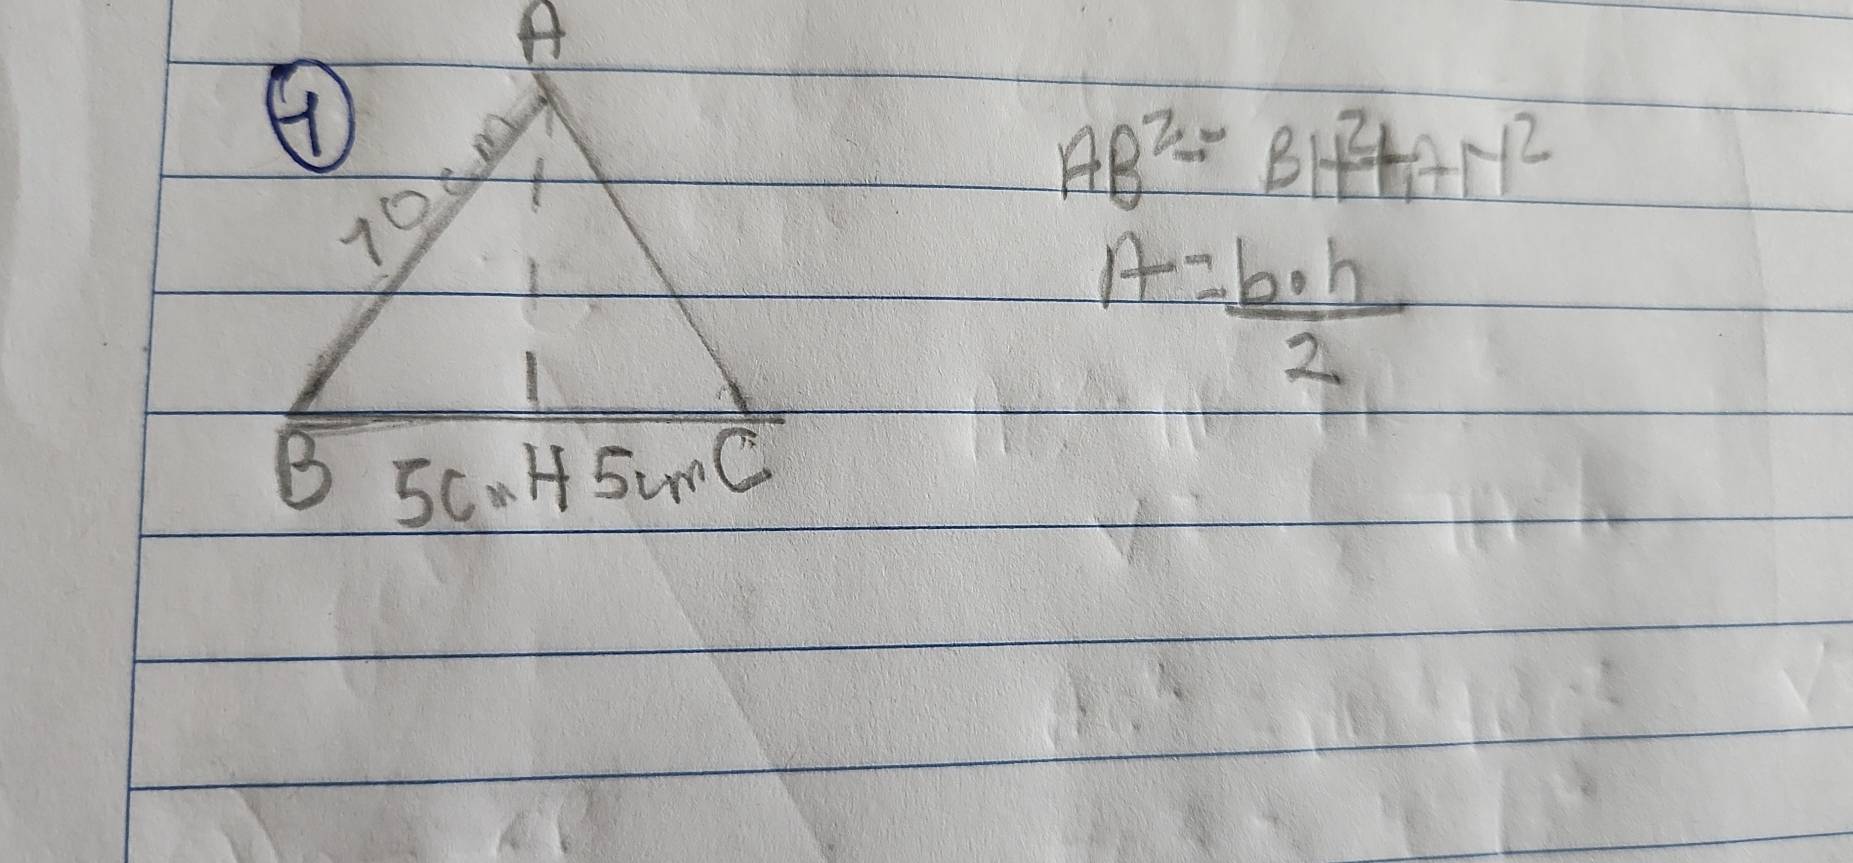 A
4
10cm
B 5cm H 5cm C
AB² = BH² + AH²
A = b•h
2